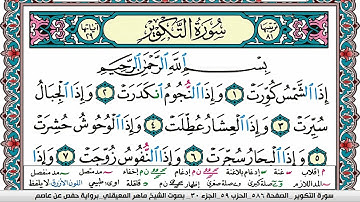 ترتيبها ٨١
سُورَةُ التَّكْوِيرِ
آياتها ٢٩
بِسْمِ اللَّهِ الرَّحْمَٰنِ الرَّحِيمِ
إِذَا ٱلشَّمْسُ كُوِّرَتْ ١ وَإِذَا ٱلنُّجُومُ ٱنكَدَرَتْ ٢ وَإِذَا ٱلْجِبَالُ
سُيِّرَتْ ٣ وَإِذَا ٱلْعِشَارُ عُطِّلَتْ ٤ وَإِذَا ٱلْوُحُوشُ حُشِرَتْ
٥ وَإِذَا ٱلْبِحَارُ سُجِّرَتْ ٦ وَإِذَا ٱلنُّفُوسُ زُوِّجَتْ ٧
سورة التكوير . الصفحة ٥٨٦ . الحزب ٥٩ . الجزء ٣٠ . بصوت الشيخ ماهر المعيقلي . برواية حفص عن عاصم